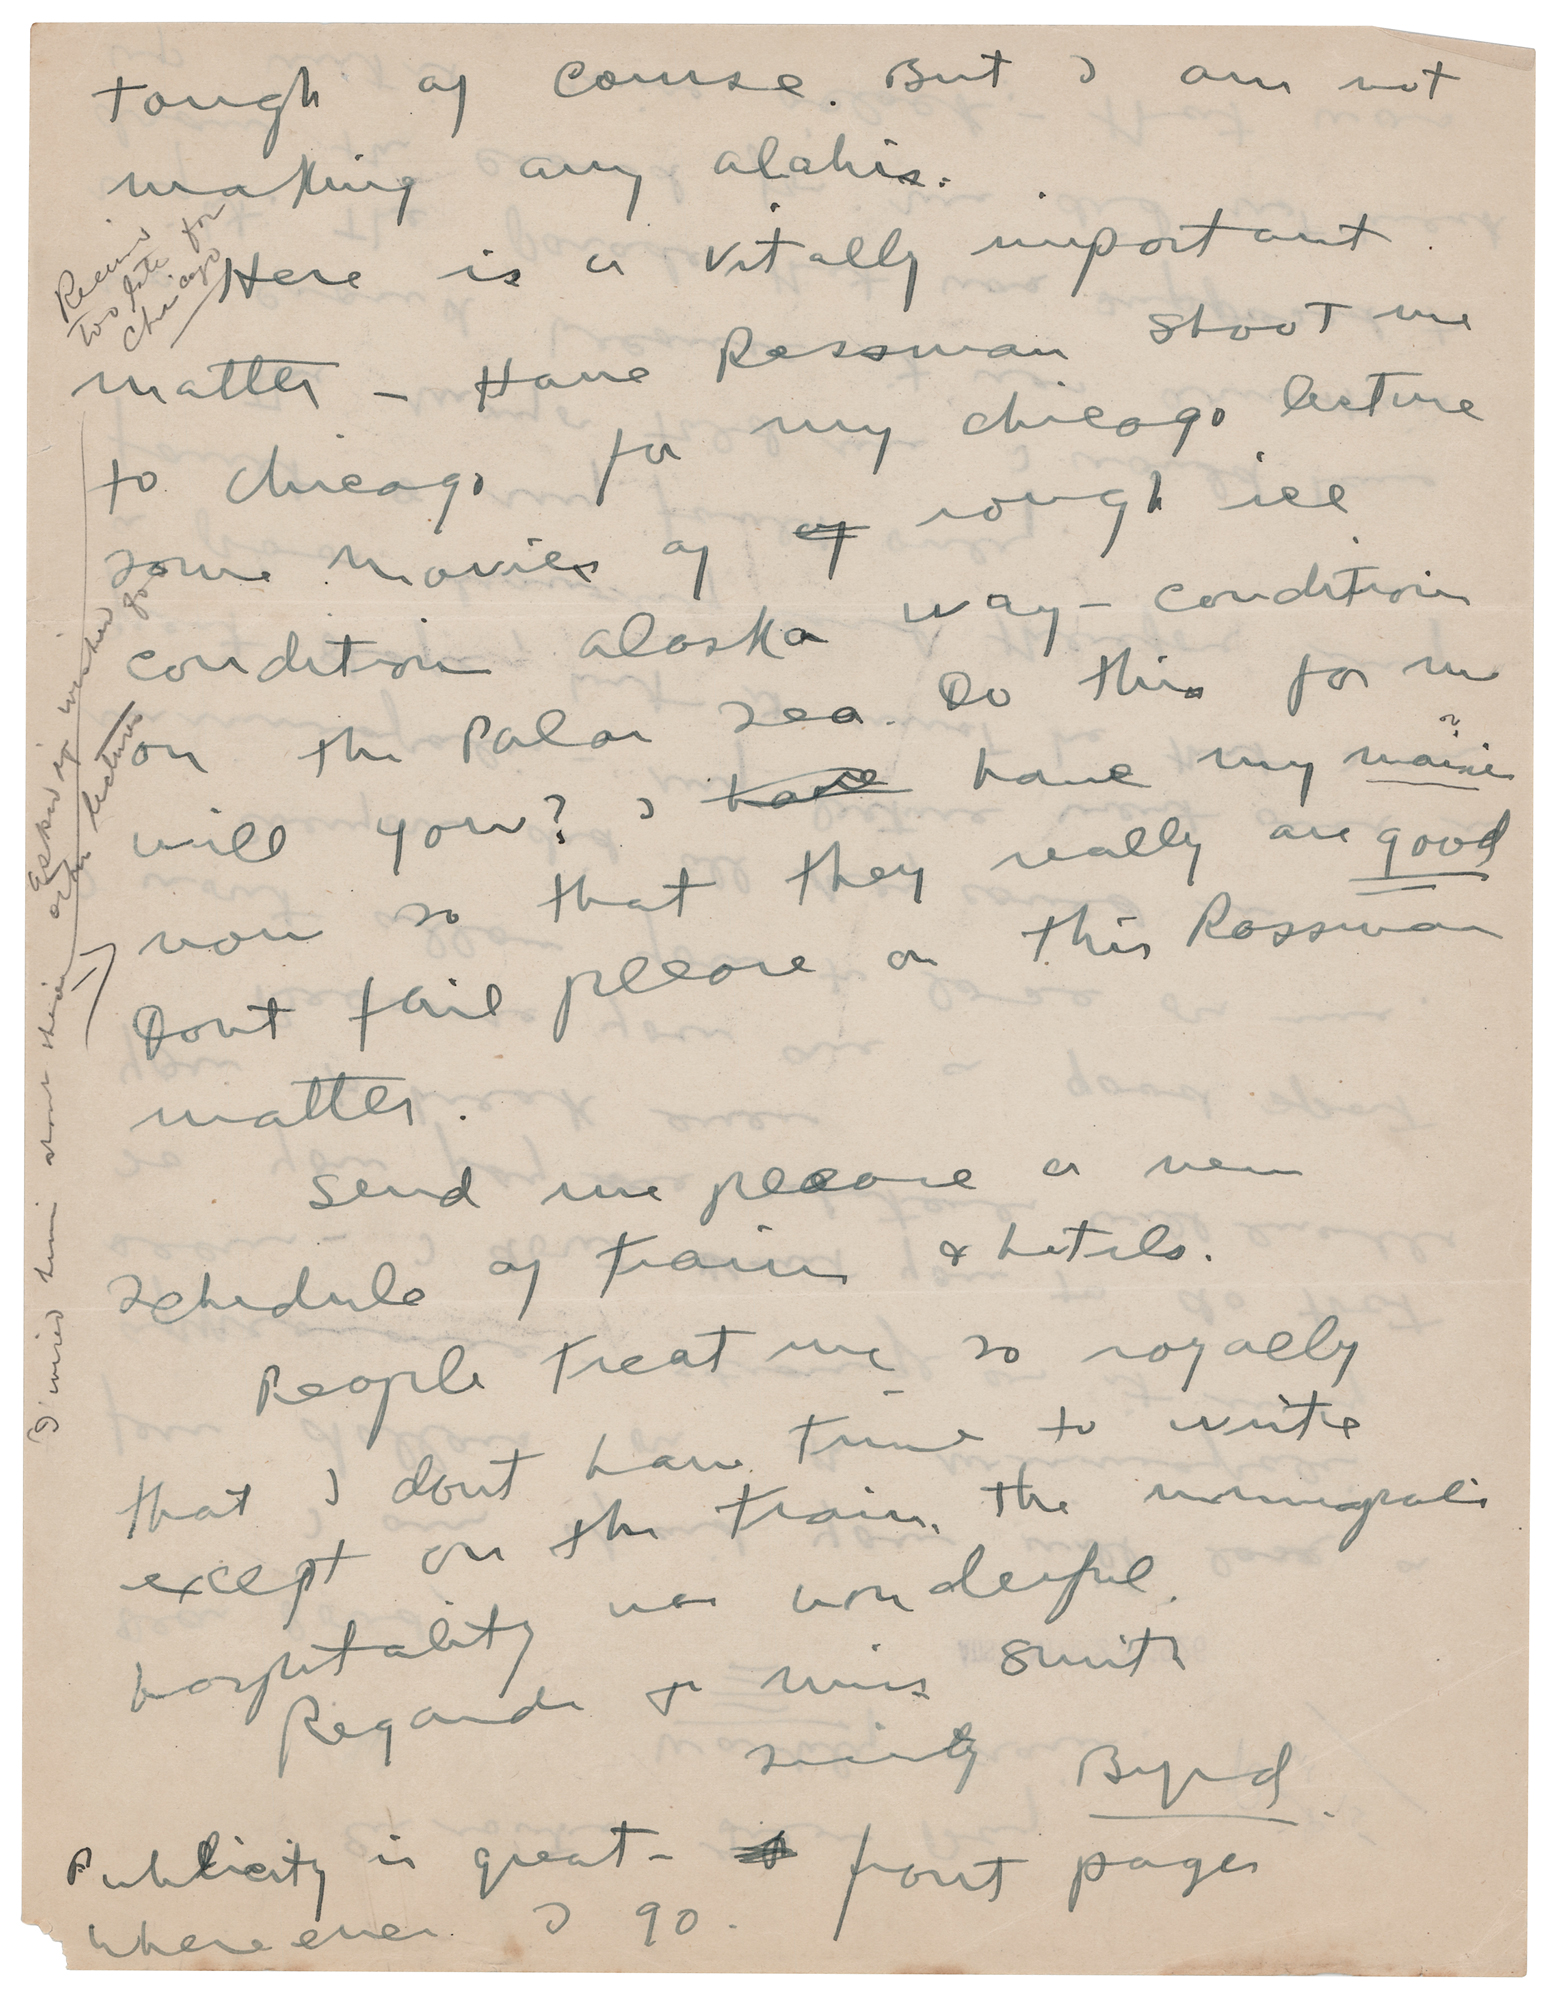 tough of course. But I am not
making any alabis.
Here is a vitally important
matter - Have Rossman shoot me
to Chicago for my Chicago lecture
some movies of of rough ice
condition Alaska way - condition
on the Polar Sea. Do this for me
will you? I have have my movie
now so that they really are good
Dont fail please on this Rossman
matter.
Send me please a new
schedule of trains & hotels.
People treat me so royally
that I dont have time to write
except on the train. The
hospitality was wonderful.
Regards to Miss Smith
Byrd
Publicity is great - front pages
where ever I go.
too late for
Chicago
I wired him about their
Asked if wished for
other lectures